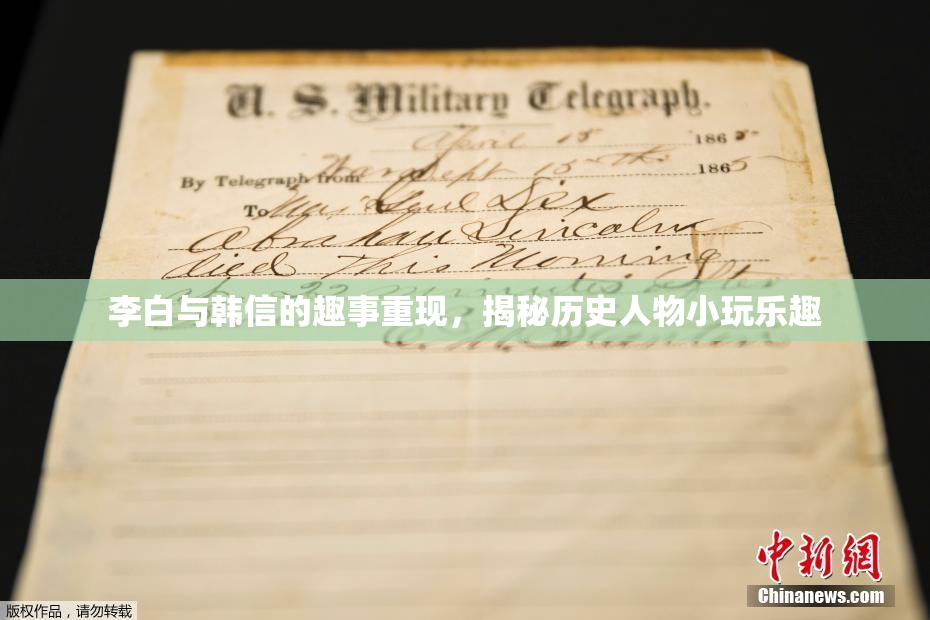 U. S. Military Telegraph.
April 15 1865
By Telegraph from War Dept 15th 1865
To Maj Genl Dix
Abraham Lincoln
died This Morning
22 minutes after
李白与韩信的趣事重现，揭秘历史人物小玩乐趣
E. M. Stanton
中新网
Chinanews.com
版权作品，请勿转载